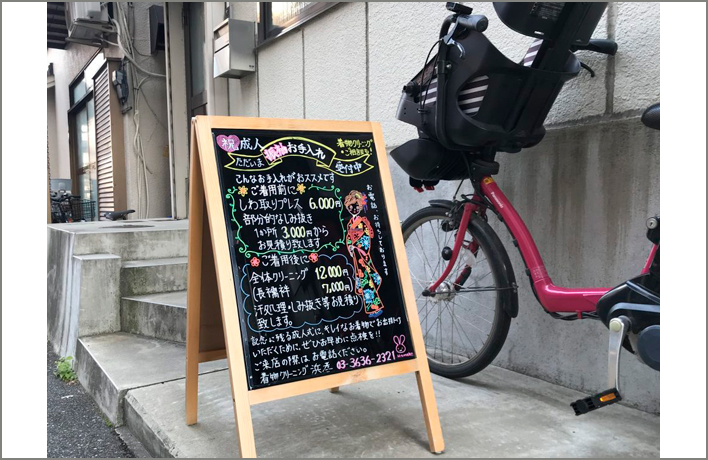 祝 成人
振袖お手入れ
ただいま 受付中
着物クリーニング
こんなお手入れがおススメです
ご着用前に
しわ取りプレス 6.000円
部分的なしみ抜き
1か所 3.000円から
お見積り致します
ご着用後に
全体クリーニング 12.000円
(長襦袢 7,000円)
汗処理・しみ抜き等お見積り
致します。
お電話 お待ちしております
記念に残る成人式に、キレイなお着物でお出掛け
いただくために、ぜひお早めに点検を!!
ご来店の際はお電話ください。
着物クリーニング 浜 03-3636-2321